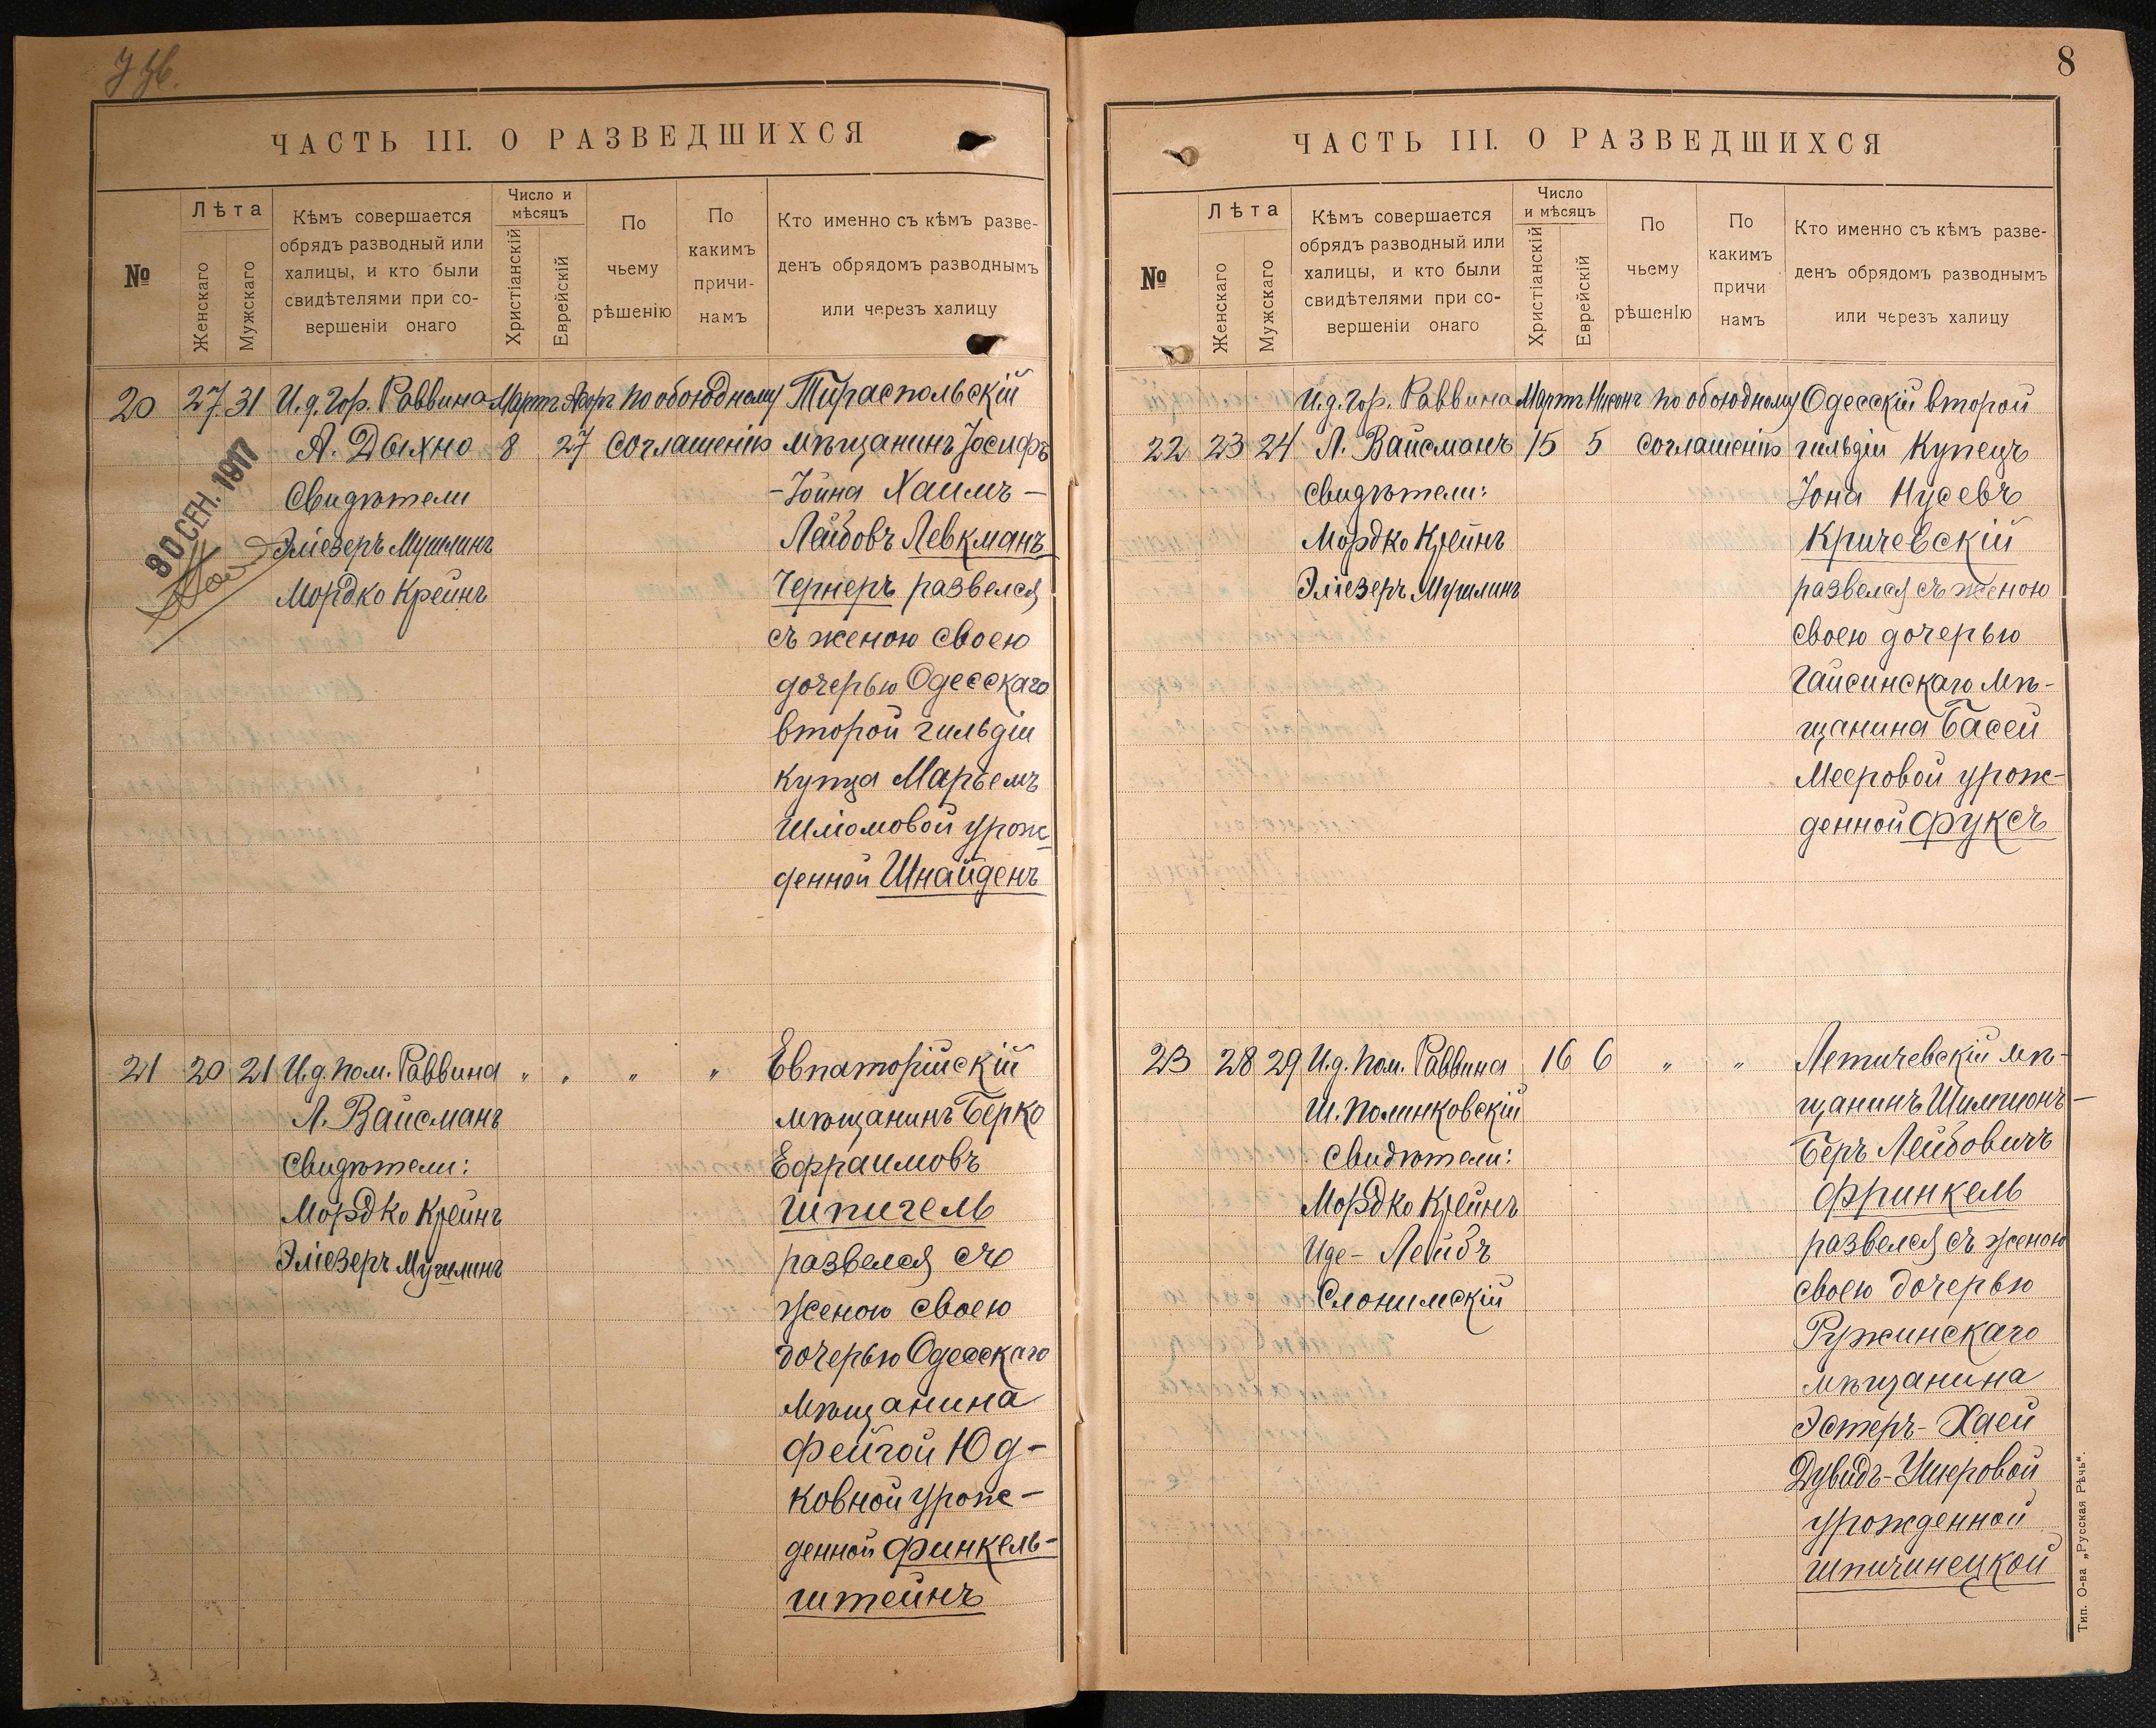 8
ЧАСТЬ III. О РАЗВЕДШИХСЯ
№
Лѣта
Женскаго
Мужскаго
Кѣмъ совершается
обрядъ разводный или
халицы, и кто были
свидѣтелями при со-
вершеніи онаго
Число и
мѣсяцъ
Христіанскій
Еврейскій
По
чьему
рѣшенію
По
какимъ
причи-
намъ
Кто именно съ кѣмъ разве-
денъ обрядомъ разводнымъ
или черезъ халицу
20 27 31 И.д. Гор. Раввина Мартъ Адоръ по обоюдному Тираспольскій
А. Дыхно 8 27 соглашенію мѣщанинъ Іосифъ
Свидѣтели -Іойна Хаимъ-
Эліезеръ Мушлинъ Лейбовъ Левкманъ
Мордко Крейнъ Чернеръ развелся
съ женою своею
дочерью Одесскаго
второй гильдіи
купца Марьемъ
Шліомовой урож-
денной Шнайденъ
30 СЕН. 1917
21 20 21 И.д. пом. Раввина " " " " Евпаторійскій
Л. Вайсманъ мѣщанинъ Берко
Свидѣтели: Ефраимовъ
Мордко Крейнъ Шпигель
Эліезеръ Мушлинъ развелся съ
женою своею
дочерью Одесскаго
мѣщанина
Фейгой Юд-
ковной урож-
денной Финкель-
штейнъ
ЧАСТЬ III. О РАЗВЕДШИХСЯ
№
Лѣта
Женскаго
Мужскаго
Кѣмъ совершается
обрядъ разводный или
халицы, и кто были
свидѣтелями при со-
вершеніи онаго
Число
и мѣсяцъ
Христіанскій
Еврейскій
По
чьему
рѣшенію
По
какимъ
причи
намъ
Кто именно съ кѣмъ разве-
денъ обрядомъ разводнымъ
или через халицу
И.д. Гор. Раввина Мартъ Нисонъ по обоюдному Одесскій второй
22 23 24 Л. Вайсманъ 15 5 соглашенію гильдіи Купецъ
Свидѣтели: Іона Нусевъ
Мордко Крейнъ Кричевскій
Эліезеръ Мушлинъ развелся съ женою
своею дочерью
Гайсинскаго мѣ-
щанина Басей
Мееровой урож-
денной Фуксъ
23 28 29 И.д. пом. Раввина 16 6 " " Летичевскій мѣ-
Ш. Полинковскій щанинъ Шимшонъ-
Свидѣтели: Беръ Лейбовичъ
Мордко Крейнъ Фринкель
Иде-Лейбъ развелся съ женою
Слонимскій своею дочерью
Ружинскаго
мѣщанина
Эстеръ-Хаей
Дувидъ-Ушеровой
урожденной
Шпичинецкой
Тип. О-ва „Русская Рѣчь“.